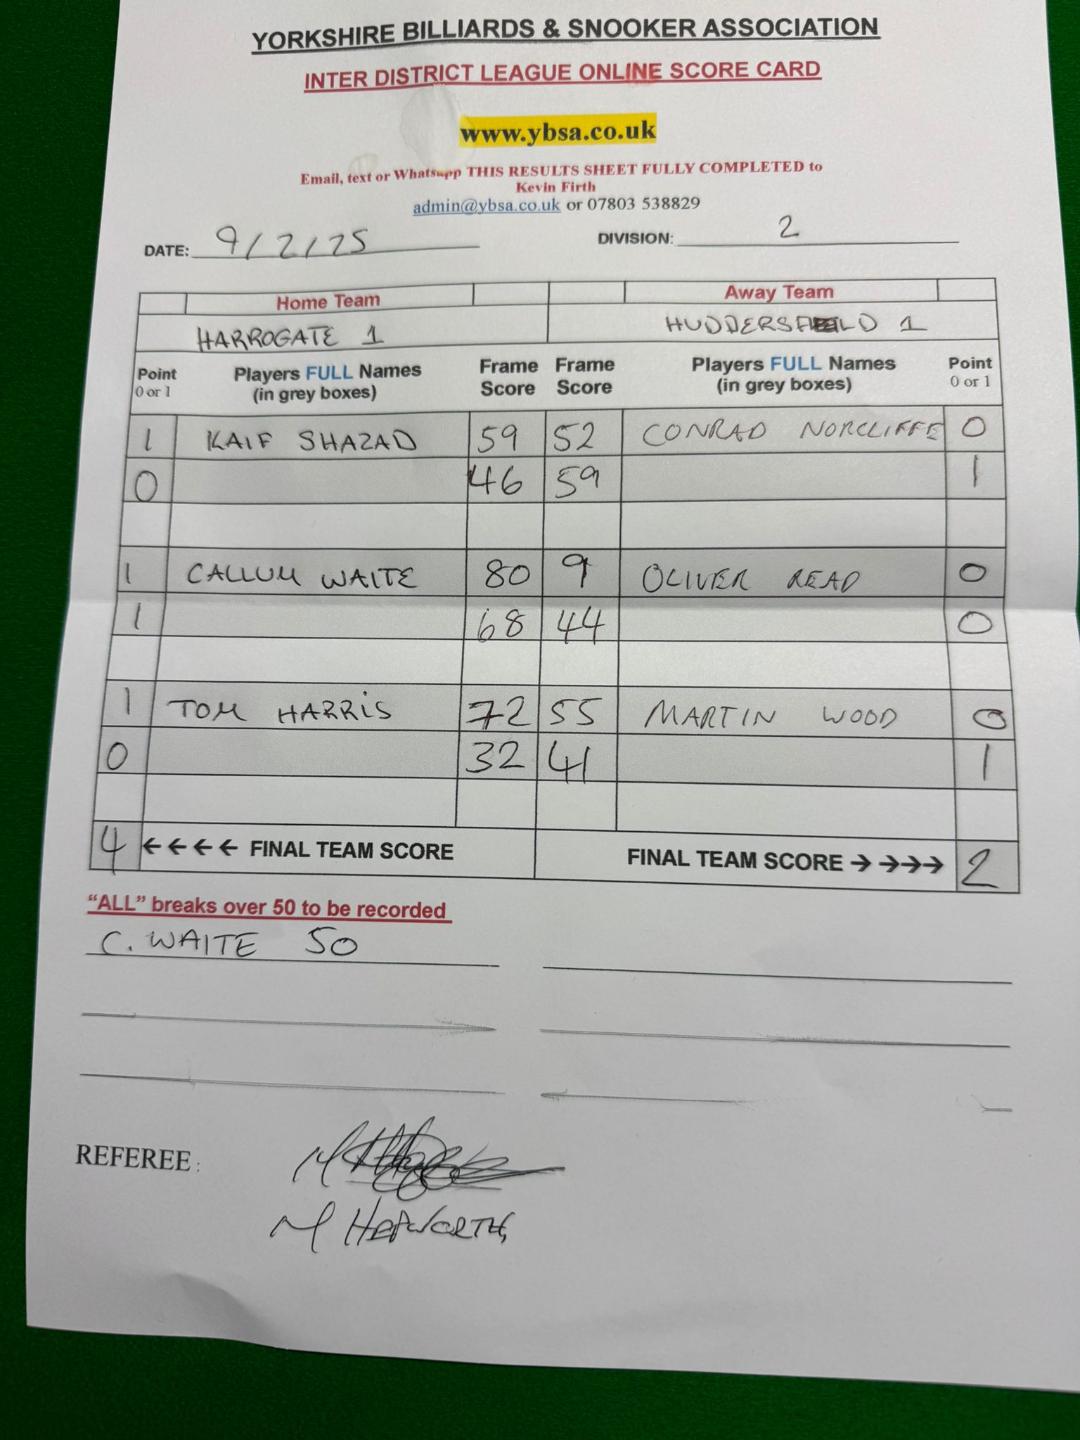 YORKSHIRE BILLIARDS & SNOOKER ASSOCIATION
INTER DISTRICT LEAGUE ONLINE SCORE CARD
www.ybsa.co.uk
Email, text or Whatsapp THIS RESULTS SHEET FULLY COMPLETED to
Kevin Firth
admin@ybsa.co.uk or 07803 538829
DATE: 9/2/25 DIVISION: 2
Home Team Away Team
HARROGATE 1 HUDDERSFIELD 1
Point 0 or 1 Players FULL Names (in grey boxes) Frame Score Frame Score Players FULL Names (in grey boxes) Point 0 or 1
1 KAIF SHAZAD 59 52 CONRAD NORCLIFFE 0
0 46 59 1
1 CALLUM WAITE 80 9 OLIVER READ 0
1 68 44 0
1 TOM HARRIS 72 55 MARTIN WOOD 0
0 32 41 1
4 ←←←← FINAL TEAM SCORE FINAL TEAM SCORE → →→→ 2
"ALL" breaks over 50 to be recorded
C. WAITE 50
REFEREE:
M HEPWORTH